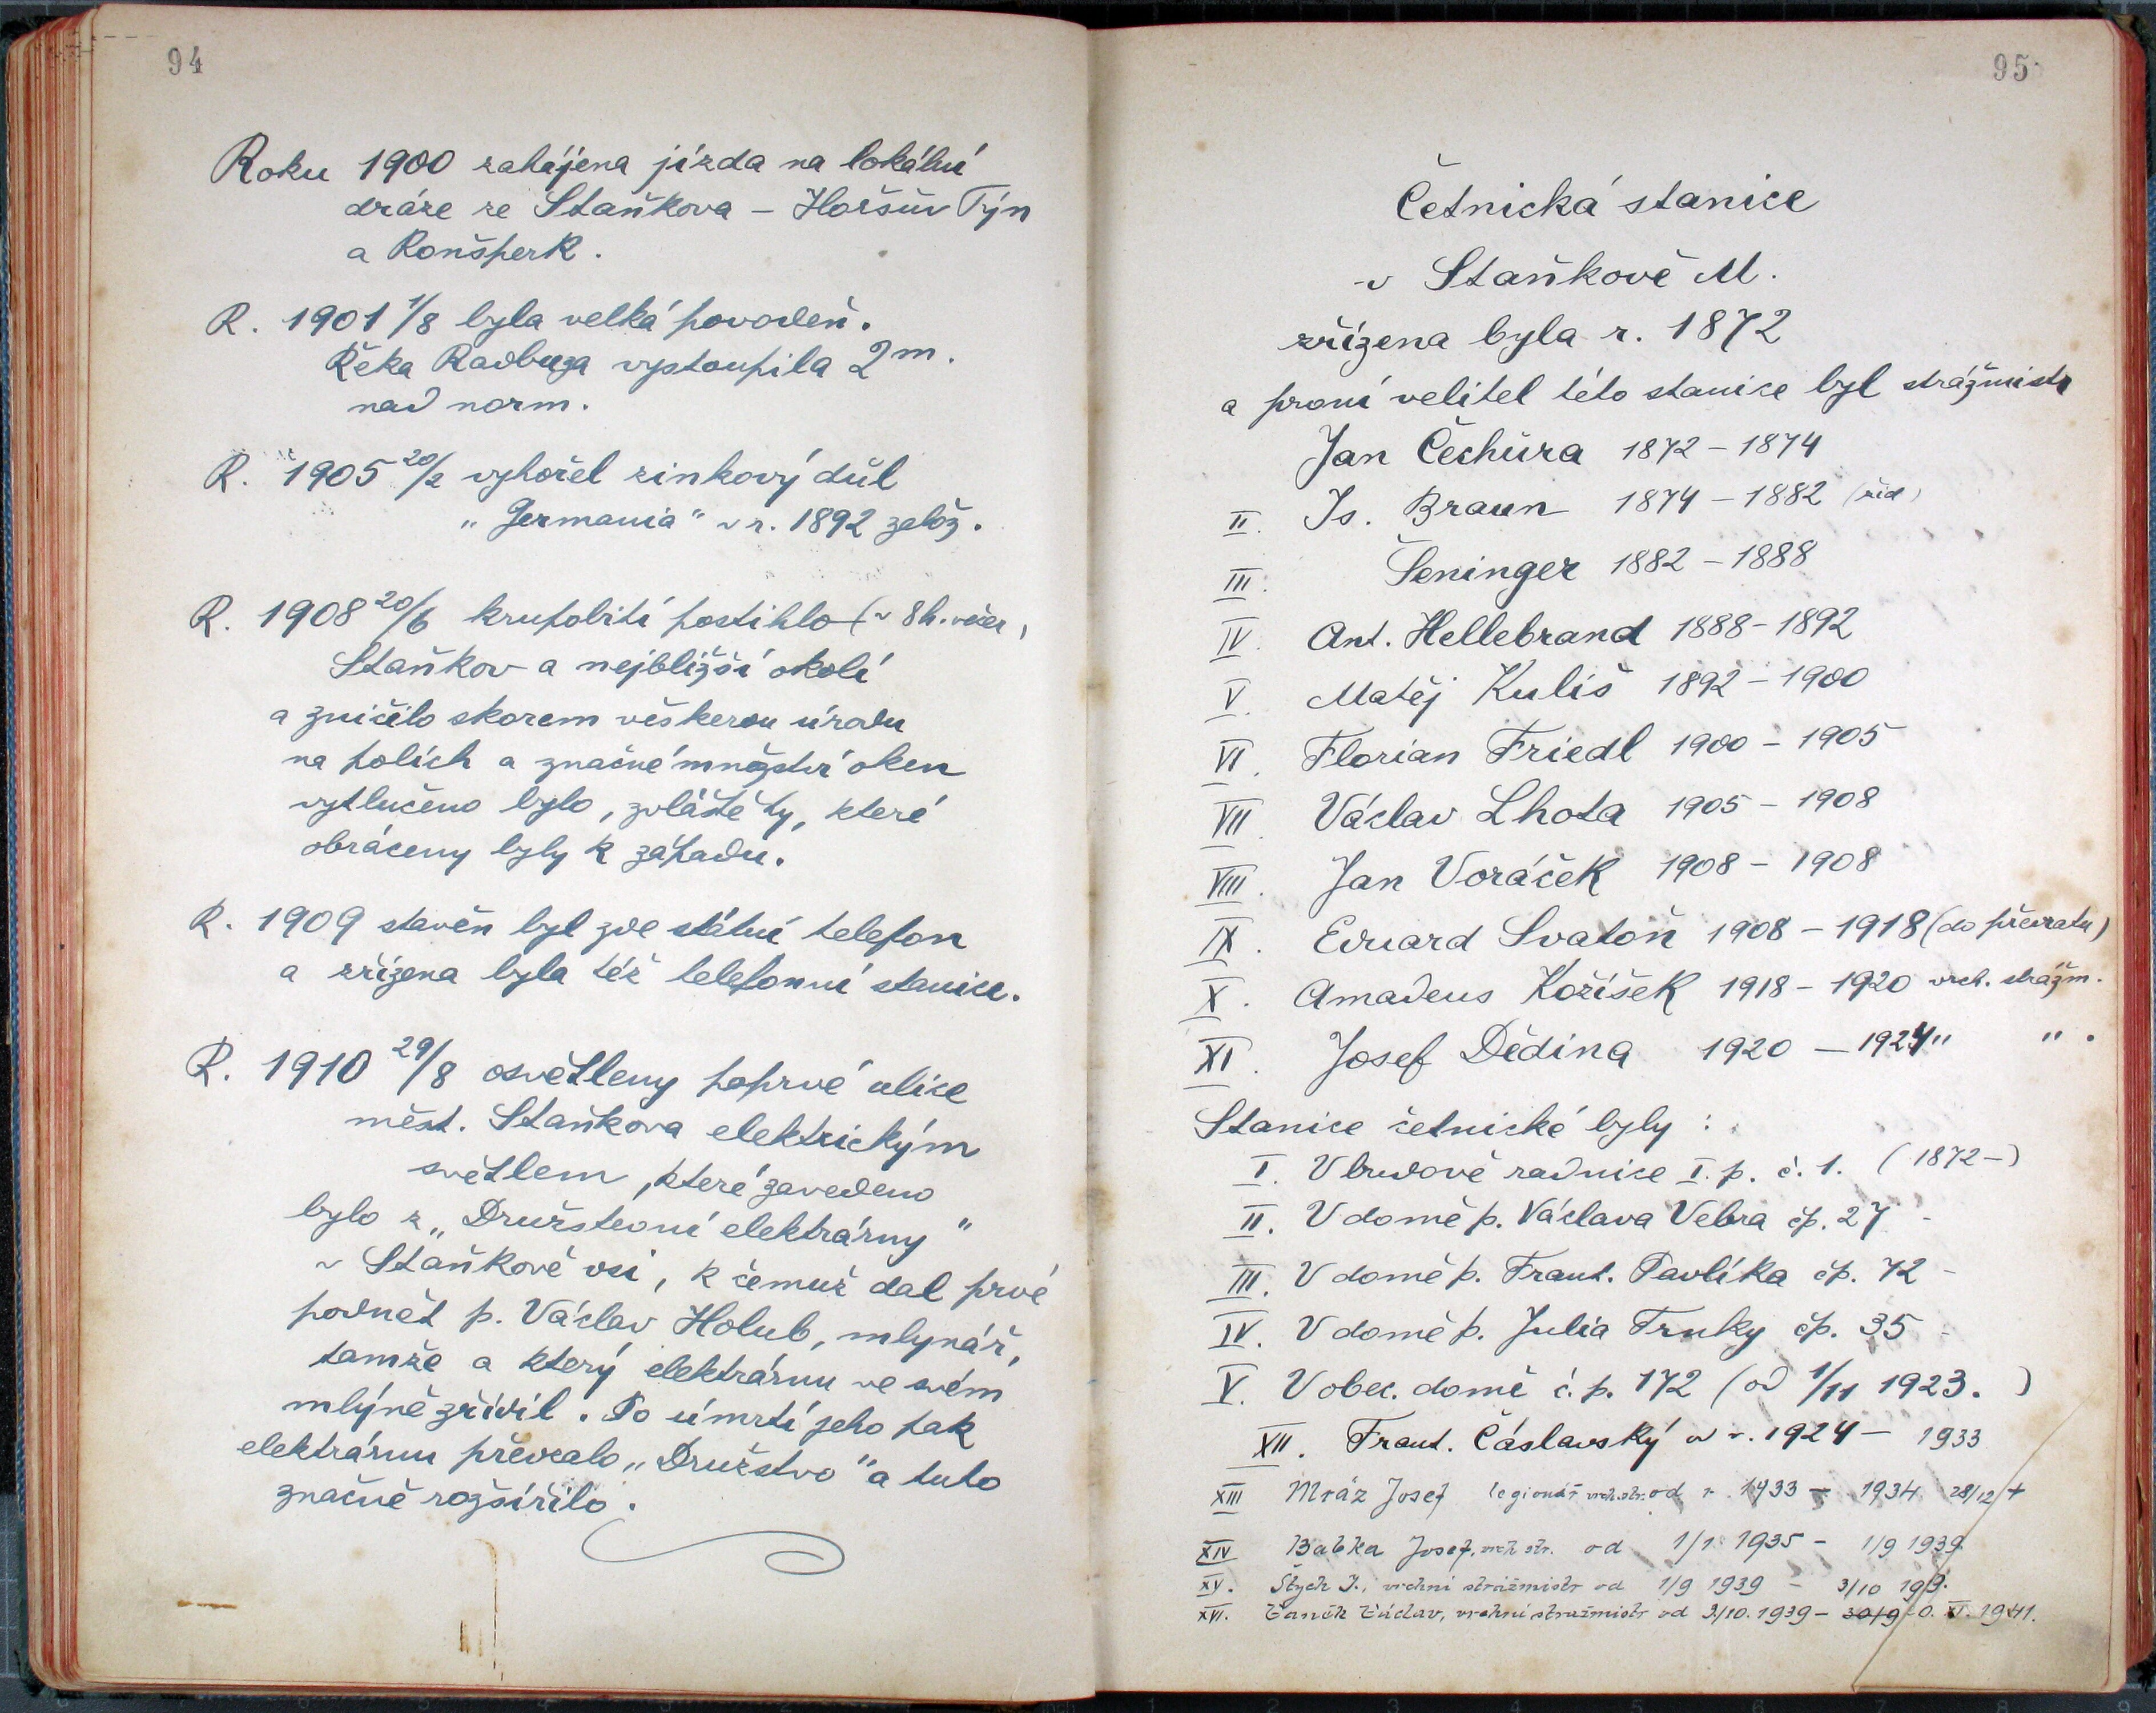 94
Roku 1900 zahájena jízda na lokální
dráze ze Staňkova – Horšův Týn
a Ronšperk.
R. 1901 1/8 byla velká povodeň.
Řeka Radbuza vystoupila 2 m.
nad norm.
R. 1905 20/2 vyhořel zinkový důl
„Germania" v r. 1892 založ.
R. 1908 20/6 krupobití postihlo (v 8 h. večer)
Staňkov a nejbližší okolí
a zničilo skorem veškerou úrodu
na polích a značné množství oken
vytlučeno bylo, zvláště ty, které
obráceny byly k západu.
R. 1909 stavěn byl zde státní telefon
a zřízena byla též telefonní stanice.
R. 1910 29/8 osvětleny poprvé ulice
měst. Staňkova elektrickým
světlem, které zavedeno
bylo z „Družstevní elektrárny"
v Staňkově vsi, k čemuž dal prvé
podnět p. Václav Holub, mlynář,
tamže a který elektrárnu ve svém
mlýně zřídil. Po úmrtí jeho pak
elektrárnu převzalo „Družstvo" a tuto
značně rozšířilo.
95
Četnická stanice
v Staňkově M.
zřízena byla r. 1872
a první velitel této stanice byl strážmistr
Jan Čechůra 1872 – 1874
II. Is. Braun 1874 – 1882 (žid)
III. Šeninger 1882 – 1888
IV. Ant. Hellebrand 1888 – 1892
V. Matěj Kuliš 1892 – 1900
VI. Florian Friedl 1900 – 1905
VII. Václav Lhota 1905 – 1908
VIII. Jan Voráček 1908 – 1908
IX. Eduard Svatoň 1908 – 1918 (do převratu)
X. Amadeus Kožíšek 1918 – 1920 vrch. strážm.
XI. Josef Dědina 1920 – 1924 " " .
Stanice četnické byly :
I. V budově radnice I. p. č. 1. (1872 –)
II. V domě p. Václava Vebra čp. 27 –
III. V domě p. Frant. Pavlíka čp. 72 –
IV. V domě p. Julia Trnky čp. 35 –
V. V obec. domě č. p. 172 (od 1/11 1923. )
XII. Frant. Čáslavský od r. 1924 – 1933
XIII Mráz Josef legionář vrch. str. od r. 1933 – 1934 28/12 +
XIV Babka Josef, vrch str. od 1/1 1935 – 1/9 1939
XV. Štych J., vrchní strážmistr od 1/9 1939 – 3/10 1939.
XVI. Václav, vrchní strážmistr od 3/10. 1939 – 30/9 XI. 1941.